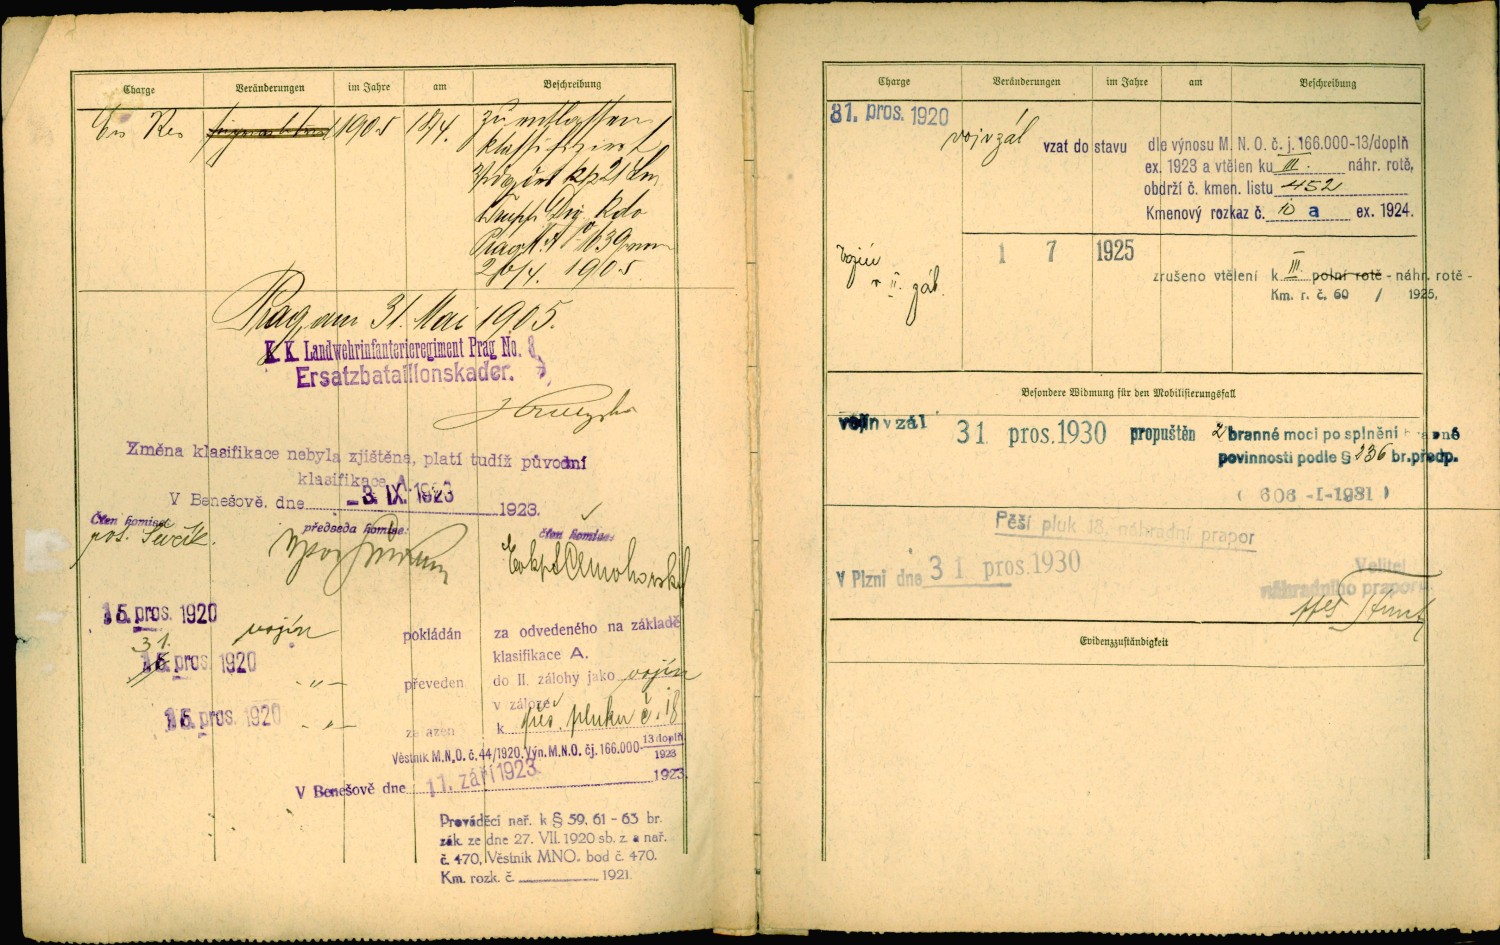 Charge Veränderungen im Jahre am Beschreibung
Ers Res 1905 18/4. zu entlassen
klassifizirt
Prag am 31. Mai 1905.
K. K. Landwehrinfanterieregiment Prag No. 8
Ersatzbataillonskader.
Změna klasifikace nebyla zjištěna, platí tudíž původní
klasifikace A.
V Benešově, dne 3. IX. 1923 1923.
Člen komise předseda komise: člen komise:
15. pros. 1920 vojín pokládán za odvedeného na základě
klasifikace A.
31.
15. pros. 1920 -"- převeden do II. zálohy jako vojín
v záloze
15. pros. 1920 -"- zařazen k pěš. pluku č. 18
Věstník M.N.O. č. 44/1920. Výn. M.N.O. čj. 166.000-13 doplň/1923
V Benešově dne 11. září 1923. 1923.
Prováděcí nař. k § 59, 61 - 63 br.
zák. ze dne 27. VII. 1920 sb. z. a nař.
č. 470, Věstník MNO. bod č. 470.
Km. rozk. č. 1921.
Charge Veränderungen im Jahre am Beschreibung
31. pros. 1920 voj v zál vzat do stavu dle výnosu M. N. O. č. j. 166.000-13/doplň
ex. 1923 a vtělen ku III. náhr. rotě,
obdrží č. kmen. listu 452
Kmenový rozkaz č. 10 a ex. 1924.
vojín v II. zál. 1 7 1925 zrušeno vtělení k III. polní rotě - náhr. rotě -
Km. r. č. 60 / 1925,
Besondere Widmung für den Mobilisierungsfall
vojín v zál 31. pros. 1930 propuštěn z branné moci po splnění branné
povinnosti podle § 236 br. předp.
( 606 -I-1931 )
Pěší pluk 18, náhradní prapor
V Plzni dne 31 pros. 1930 Velitel
náhradního praporu
Evidenzzuständigkeit